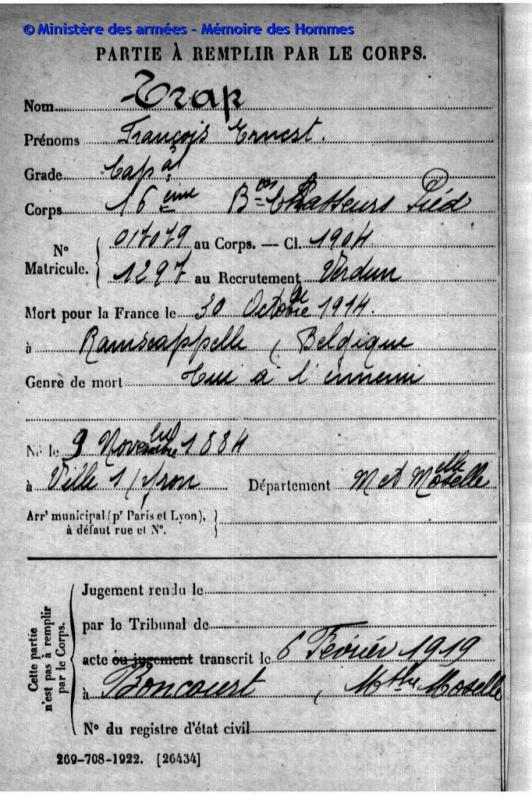 © Ministère des armées - Mémoire des Hommes
PARTIE À REMPLIR PAR LE CORPS.
Nom Trap
Prénoms François Ernest.
Grade Cap al
Corps 16 ème B on Chasseurs Pied
N° Matricule. { 017079 au Corps. — Cl. 1904
1297 au Recrutement Verdun
Mort pour la France le 30 Octobre 1914.
à Ramscappelle, Belgique
Genre de mort Tué à l'ennemi
Né le 9 Novembre 1884
à Ville s/Yron Département M et Moselle
Arrt municipal (pr Paris et Lyon), à défaut rue et N°. {
Cette partie n'est pas à remplir par le Corps. {
Jugement rendu le
par le Tribunal de
acte ou jugement transcrit le 6 Février 1919
à Boncourt, Mthe Moselle
N° du registre d'état civil
269-708-1922. [26434]